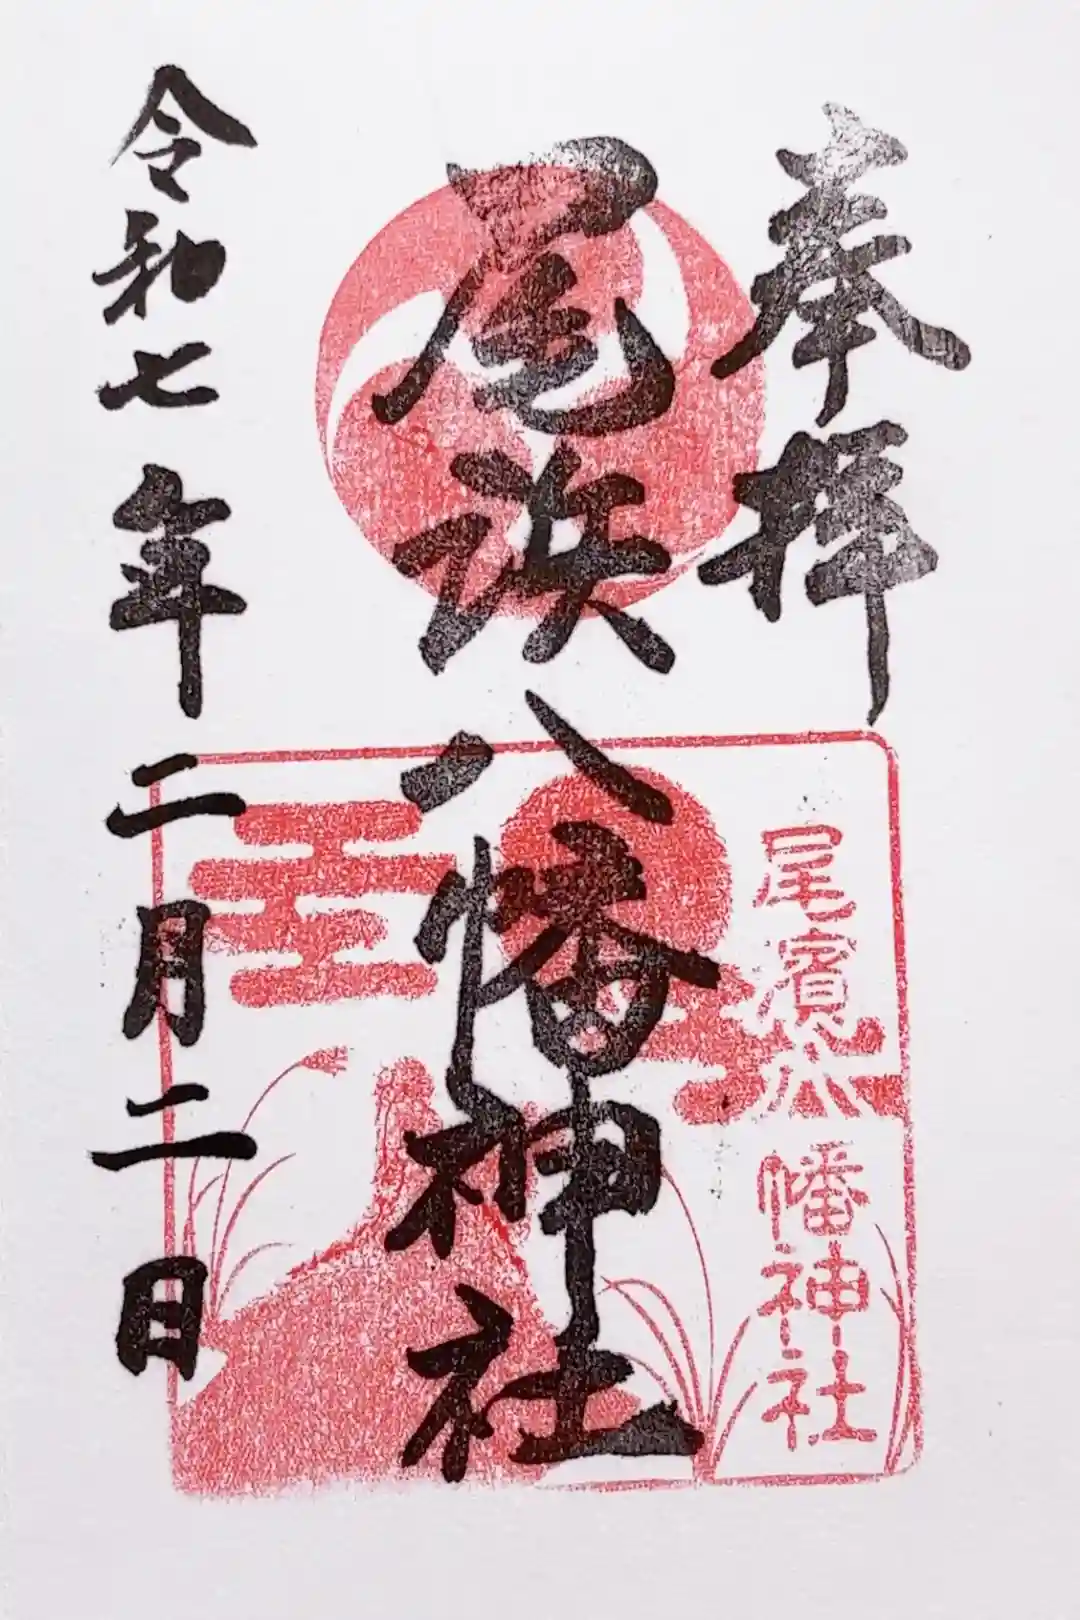 奉拝
尾浜八幡神社
令和七年二月二日
尾濱八幡神社